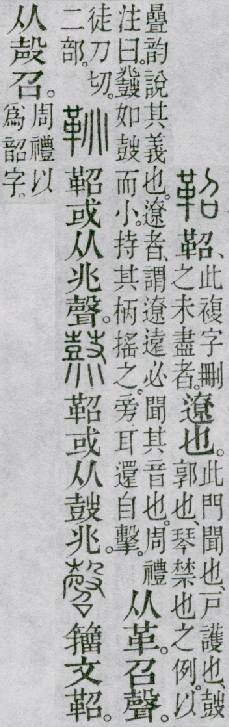 鞀 鞀、此複字刪之未盡者。遼也。此門聞也、戶護也、鼓郭也、琴禁也之例。以
疊韵說其義也。遼者、謂遼遠必聞其音也。周禮注曰。鼗如鼓而小。持其柄搖之。旁耳還自擊。从革。召聲。
徒刀切。二部。鞉 鞀或从兆聲。鼗 鞀或从鼓兆。磬 籒文鞀。
从殸召。周禮以爲韶字。